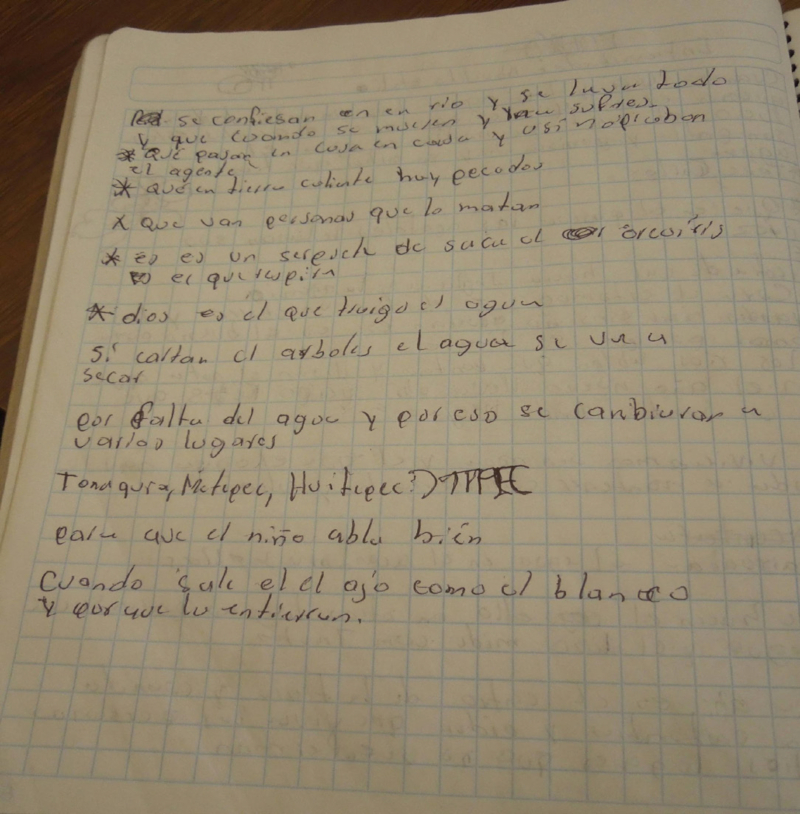 se confiesan en en rio y se lava todo
y que cuando se mueren y sufres
* que pasan en casa en casa y
el agente
* que en tierra caliente hay pecados
x que van personas que lo matan
* es es un de saca el arcoiris
es el que
* dios es el que traigo el agua
si cartan el arboles el agua se va a
secar
por falta del agua y por eso se canbiaron a
varios lugares
Metepec, Huitepec?)
para que el niño abla bién
Cuando sale el el ajo como el blanco
y porque lo entierran.